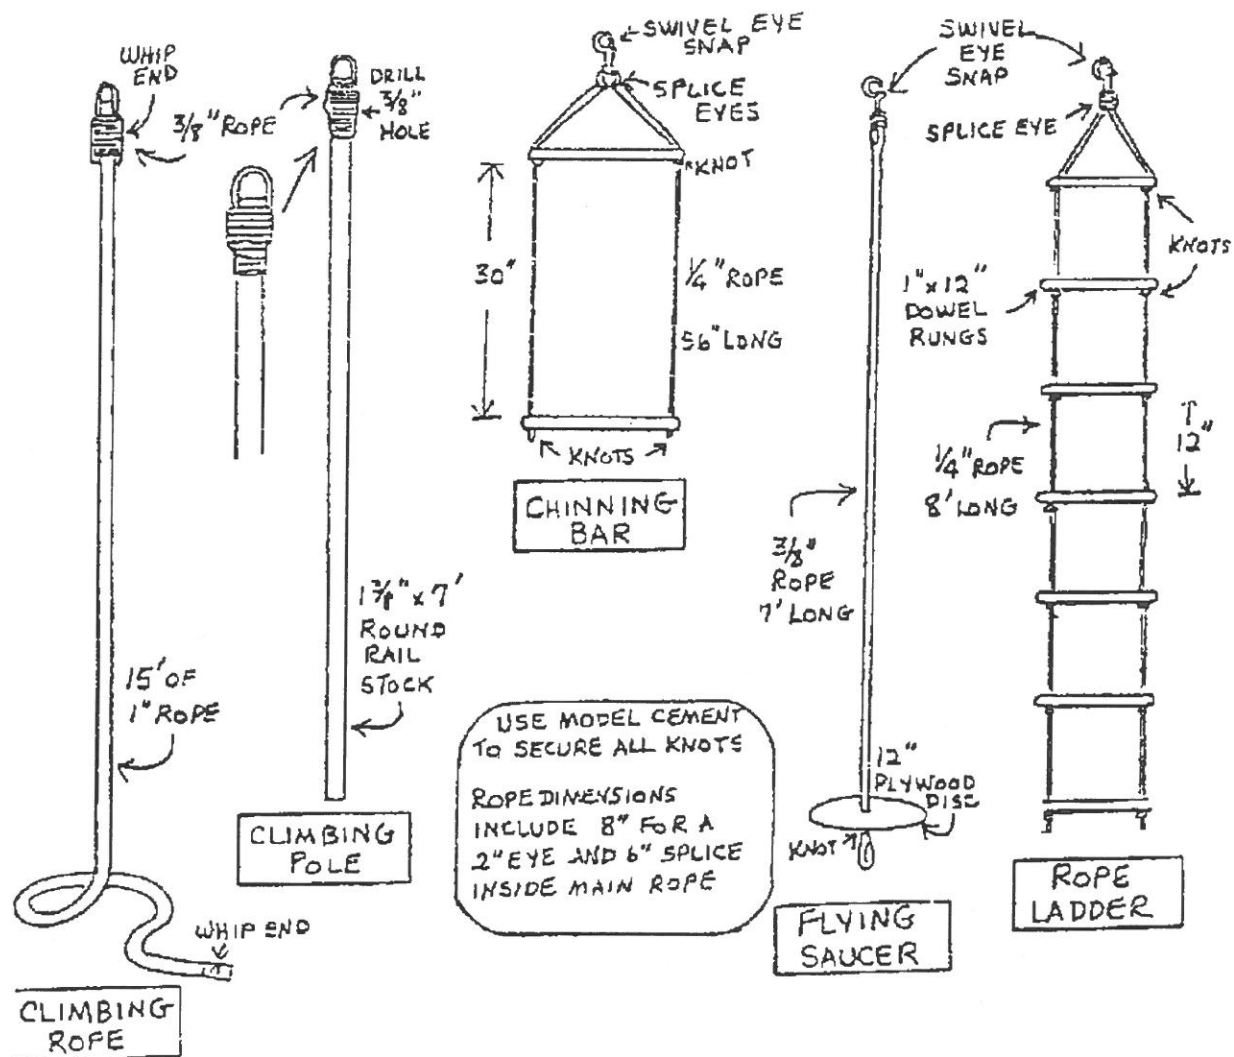 WHIP
END
3/8" ROPE
DRILL
3/8"
HOLE
15' OF
1" ROPE
WHIP END
CLIMBING
ROPE
1 3/8" x 7'
ROUND
RAIL
STOCK
CLIMBING
POLE
SWIVEL EYE
SNAP
SPLICE
EYES
KNOT
30"
1/4" ROPE
56" LONG
KNOTS
CHINNING
BAR
USE MODEL CEMENT
TO SECURE ALL KNOTS
ROPE DIMENSIONS
INCLUDE 8" FOR A
2" EYE AND 6" SPLICE
INSIDE MAIN ROPE
SWIVEL
EYE
SNAP
SPLICE EYE
3/8"
ROPE
7' LONG
12"
PLYWOOD
DISC
KNOT
FLYING
SAUCER
KNOTS
1" x 12"
DOWEL
RUNGS
1/4" ROPE
8' LONG
12"
ROPE
LADDER